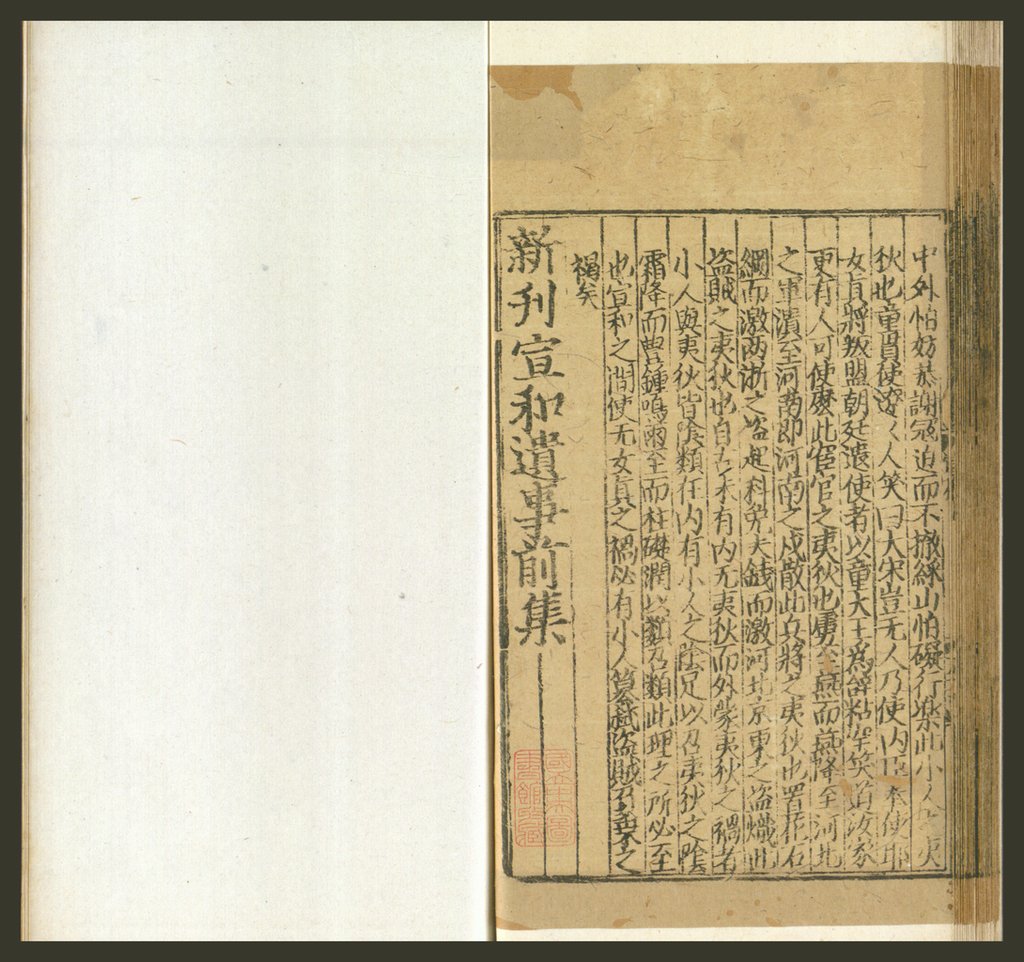 中外怕妨恭謝冦迫而不撤綵山怕礙行樂此小人之夷
狄也童貫使遼人笑曰大宋豈无人乃使内臣奉使耶
女真將叛盟朝廷遣使者以童大王爲辞粘罕笑道汝家
更有人可使麽此宦官之夷狄也虜至燕而燕降至河北
之軍潰至河南即河南之戍散此兵將之夷狄也置花石
綱而激两浙之盗起科免夫錢而激河北京東之盗熾此
盗賊之夷狄也自古未有内无夷狄而外蒙夷狄之禍者
小人與夷狄皆陰類在内有小人之陰足以召夷狄之陰
霜降而豊鍾鳴雨至而柱礎潤以類召類此理之所必至
也宣和之間使无女真之禍必有小人簒弑盗賊召乗之
禍矣
新刊宣和遺事前集
國立中央圖書館收藏